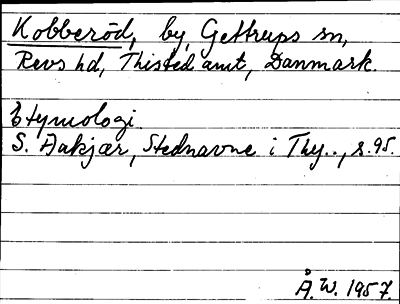 Kobberöd, by, Gettrups sn,
Revs hd, Thisted amt, Danmark.
Etymologi.
S. Aakjær, Stednavne i Thy.., s. 95.
Å. W. 1957.